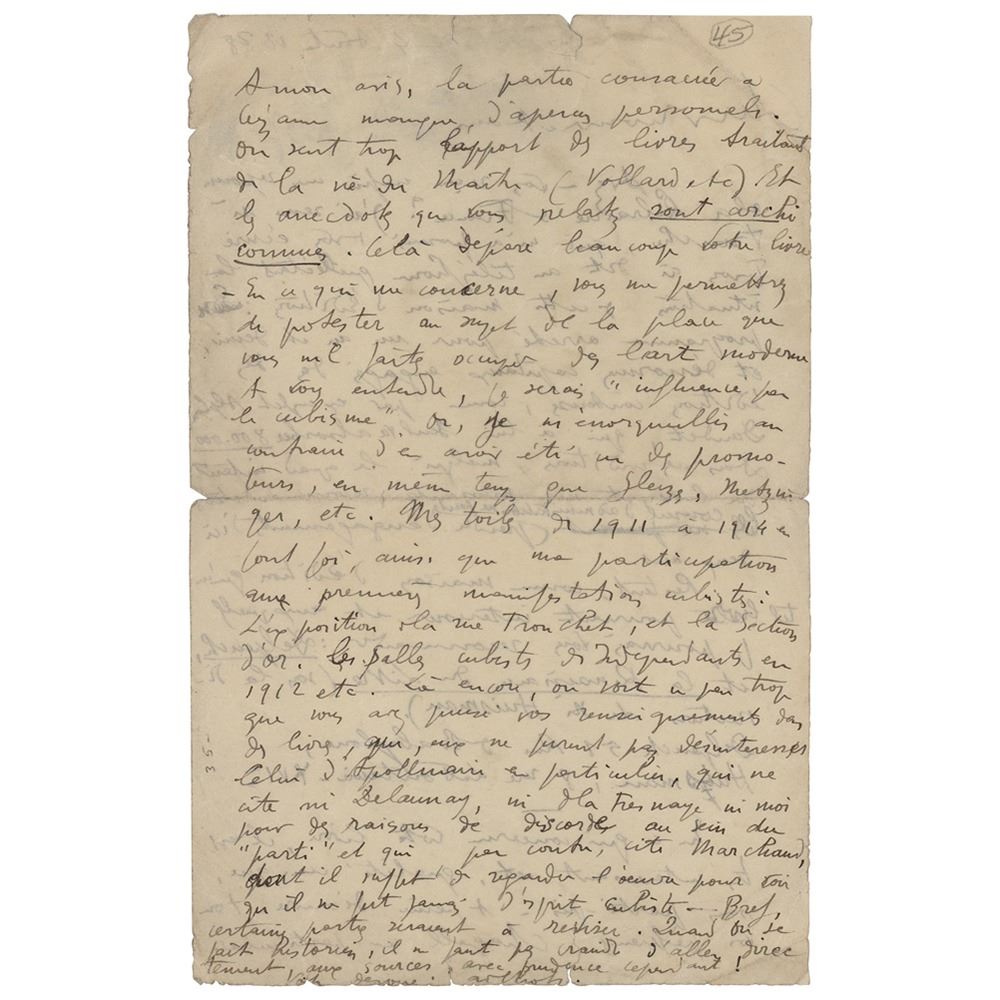 45
A mon avis, la partie consacrée a
Cézanne manque d'aperçus personnels.
On sent trop l'apport des livres traitant
de la vie du Maître (Vollard, etc) Et
les anecdotes que vous relatez sont archi
connues. Celà dépare beaucoup votre livre
- En ce qui me concerne, vous me permettrez
de protester au sujet de la place que
vous me faites occuper dans l'art moderne
A vous entendre, je serais "influencé par
le cubisme". Or, je m'enorgueillis au
contraire d'en avoir été un des promo-
teurs, en même temps que Gleizes, Metzin-
ger, etc. Mes toiles de 1911 à 1914 en
font foi, ainsi que ma participation
aux premières manifestations cubistes:
L'exposition de la rue Tronchet, et la Section
d'or. les salles cubistes des Indépendants en
1912 etc. Là encore, on voit un peu trop
que vous avez puisé vos renseignements dans
des livres, qui, eux ne furent pas désinteressés
Celui d'Apollinaire en particulier, qui ne
cite ni Delaunay, ni de la Fresnaye ni moi
pour des raisons de discordes au sein du
"parti" et qui par contre, cite Marchand,
dont il suffit de regarder l'œuvre pour voir
qu'il ne fut jamais d'esprit cubiste - Bref,
certaines parties seraient à reviser. Quand on se
fait historien, il ne faut pas craindre d'aller direc
tement, aux sources, avec prudence cependant!
Votre dévoué.
35-